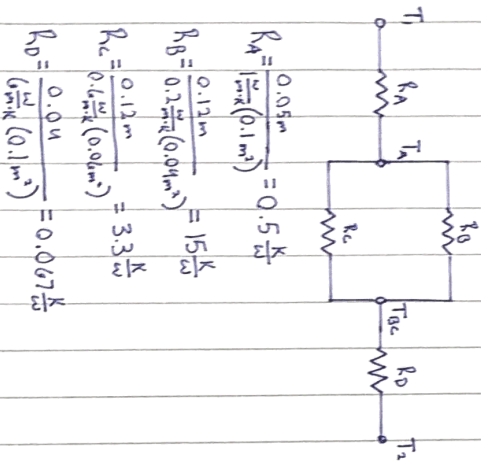 T₁ R_A T_A R_B R_C T_BC R_D T₂
R_A = 0.05m / 1 w/m·k (0.1m²) = 0.5 K/W
R_B = 0.12m / 0.2 w/m·k (0.04m²) = 15 K/W
R_C = 0.12m / 0.6 w/m·k (0.06m²) = 3.3 K/W
R_D = 0.04 / 6 w/m·k (0.1m²) = 0.067 K/W